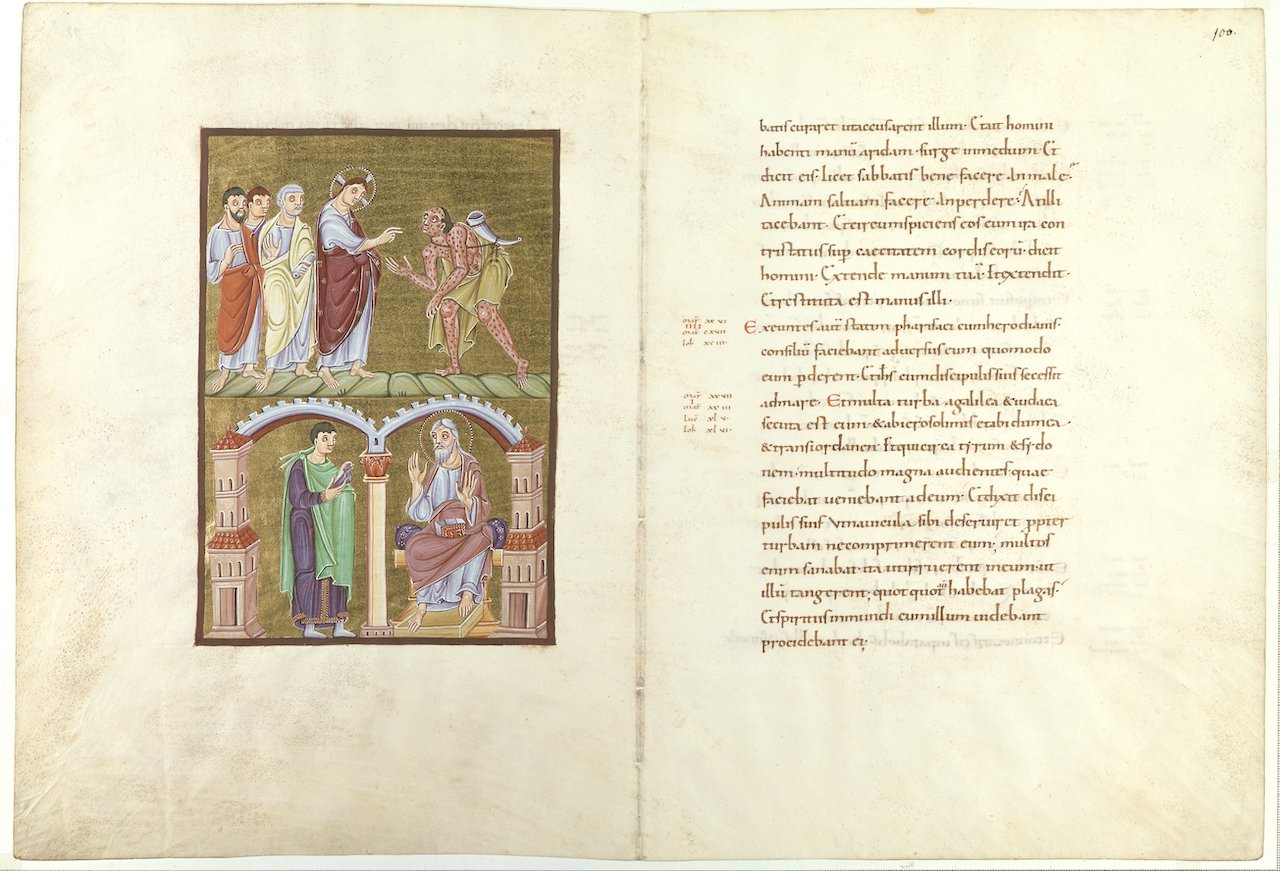 100.
batis curaret ut accusarent illum· Et ait homini
habenti manū aridam· surge in medium· Et
dicit eis· licet sabbatis bene facere· An male·
Animam salvam facere· An perdere· At illi
tacebant· Et circumspiciens eos cum ira con
tristatus sup cecitatem cordis eorū· dicit
homini· Extende manum tuā· Et extendit·
Et restituta est manus illi·
Exeuntes aut statim pharisaei cum herodianis·
consiliū faciebant adversus eum quomodo
eum pderent· Et ihs cum discipulis suis secessit
ad mare· Et multa turba a galilea & iudaea
secuta est eum· & ab ierosolimis et ab idumea·
& trans iordanen· Et qui circa tyrum & sydo
nem· multitudo magna audientes· quae
faciebat veniebant ad eum· Et dixit disci
pulis suis· Ut navicula sibi deserviret ppter
turbam ne comprimerent eum; multos
enim sanabat· ita ut irruerent in eum· ut
illū tangerent; quotquot aut habebat plagas·
Et spiritus inmundi cum illum videbant
procidebant ei;